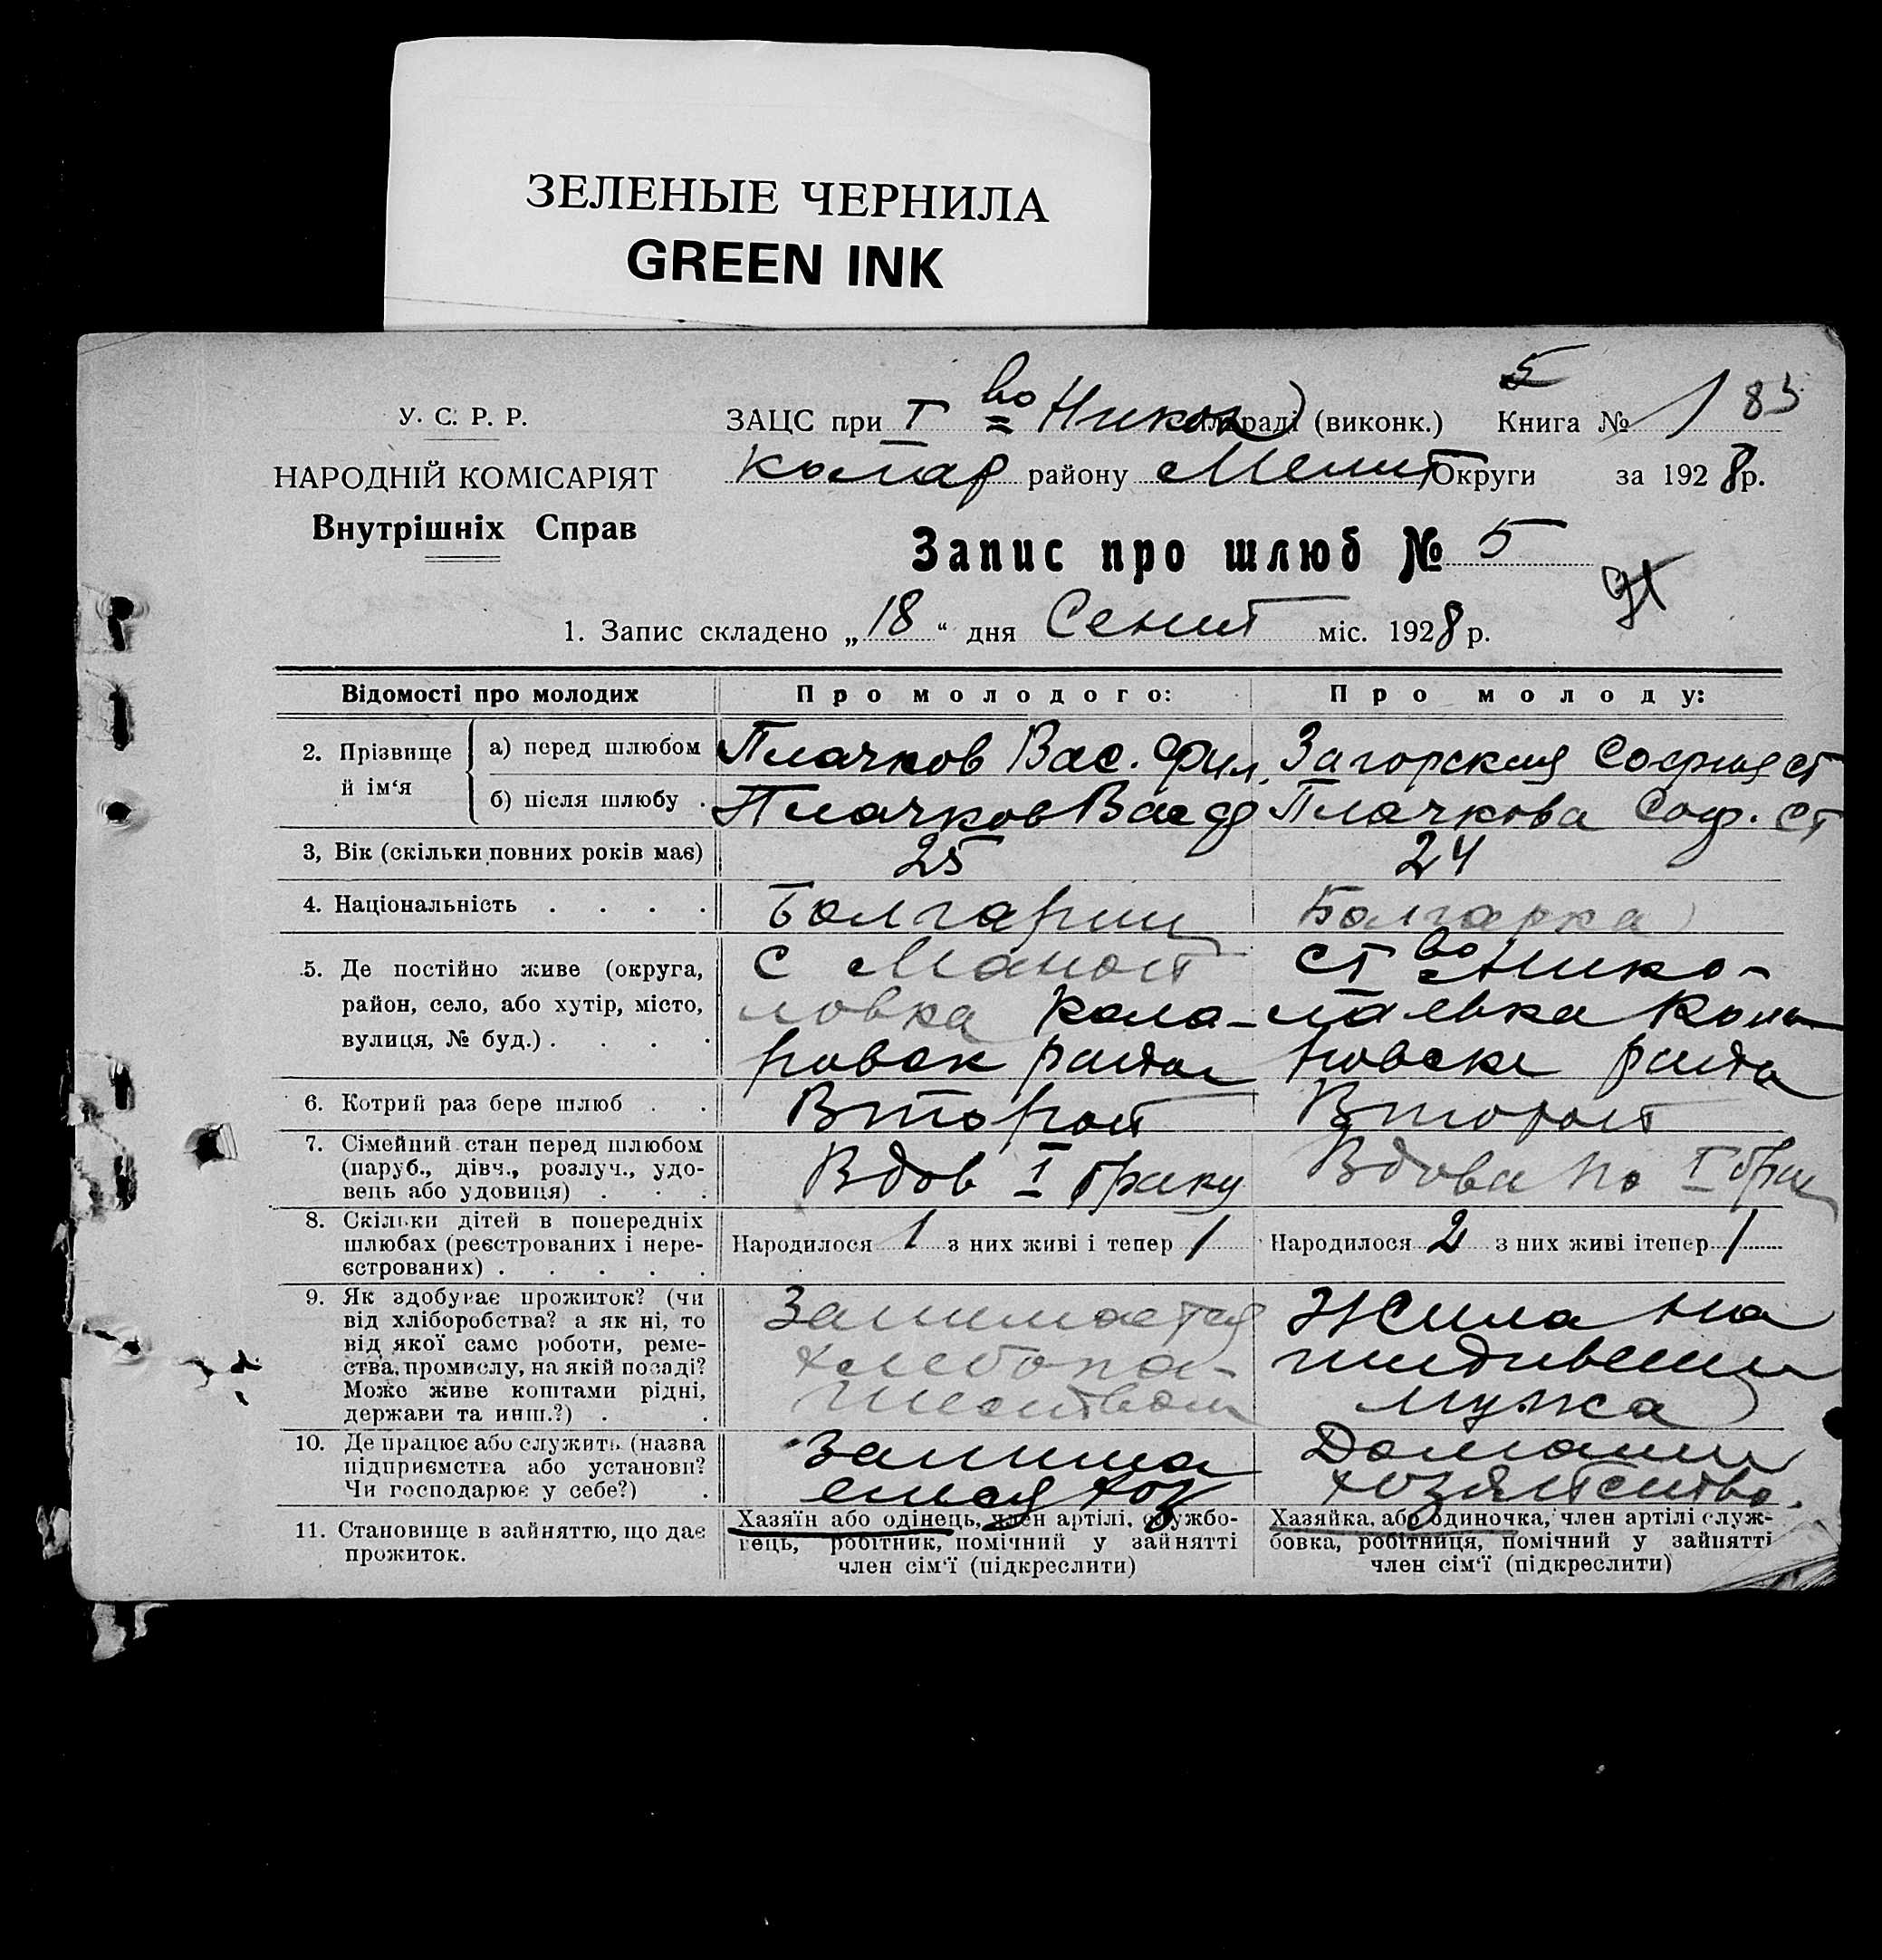 ЗЕЛЕНЫЕ ЧЕРНИЛА
GREEN INK
У. С. Р. Р.
НАРОДНІЙ КОМІСАРІЯТ
Внутрішніх Справ
5
ЗАЦС при I во Никол раді (виконк.) Книга № 1 83
Колар району Мелит Округи за 1928 р.
Запис про шлюб № 5
1. Запис складено „18“ дня Сент міс. 1928 р.
Відомості про молодих Про молодого: Про молоду:
2. Прізвище й ім‘я
а) перед шлюбом Плачков Вас. Фил. Загорская София Ст
б) після шлюбу . Плачков Вас Ф Плачкова Соф. Ст
3, Вік (скільки повних років має) 25 24
4. Національність . . . . Болгарин Болгарка
5. Де постійно живе (округа, район, село, або хутір, місто, вулиця, № буд.) . . . .
с Маной
ловка Кола-
ровск района
ст во Нико-
лаевка Кола
ровск района
6. Котрий раз бере шлюб . . Второй Второй
7. Сімейний стан перед шлюбом
(паруб., дівч., розлуч., удо-
вець або удовиця) . . .
Вдов I браку Вдова по I брак
8. Скільки дітей в попередніх
шлюбах (реєстрованих і нере-
єстрованих) . . . . .
Народилося 1 з них живі і тепер 1 Народилося 2 з них живі ітепер 1
9. Як здобуває прожиток? (чи
від хліборобства? а як ні, то
від якої само роботи, реме-
ства, промислу, на якій посаді?
Може живе коштами рідні,
держави та инш.?) . .
Занимается
хлебопа-
шеством
Жила на
иждивении
мужа
10. Де працює або служить (назва
підприємства або установи?
Чи господарює у себе?) .
Занима
ется хоз
Домашн
хозяйство.
11. Становище в зайняттю, що дає
прожиток.
Хазяїн або одінець, член артілі, службо-
вець, робітник, помічний у зайнятті
член сім‘ї (підкреслити)
Хазяйка, або одиночка, член артілі служ-
бовка, робітниця, помічний у зайнятті
член сім‘ї (підкреслити)